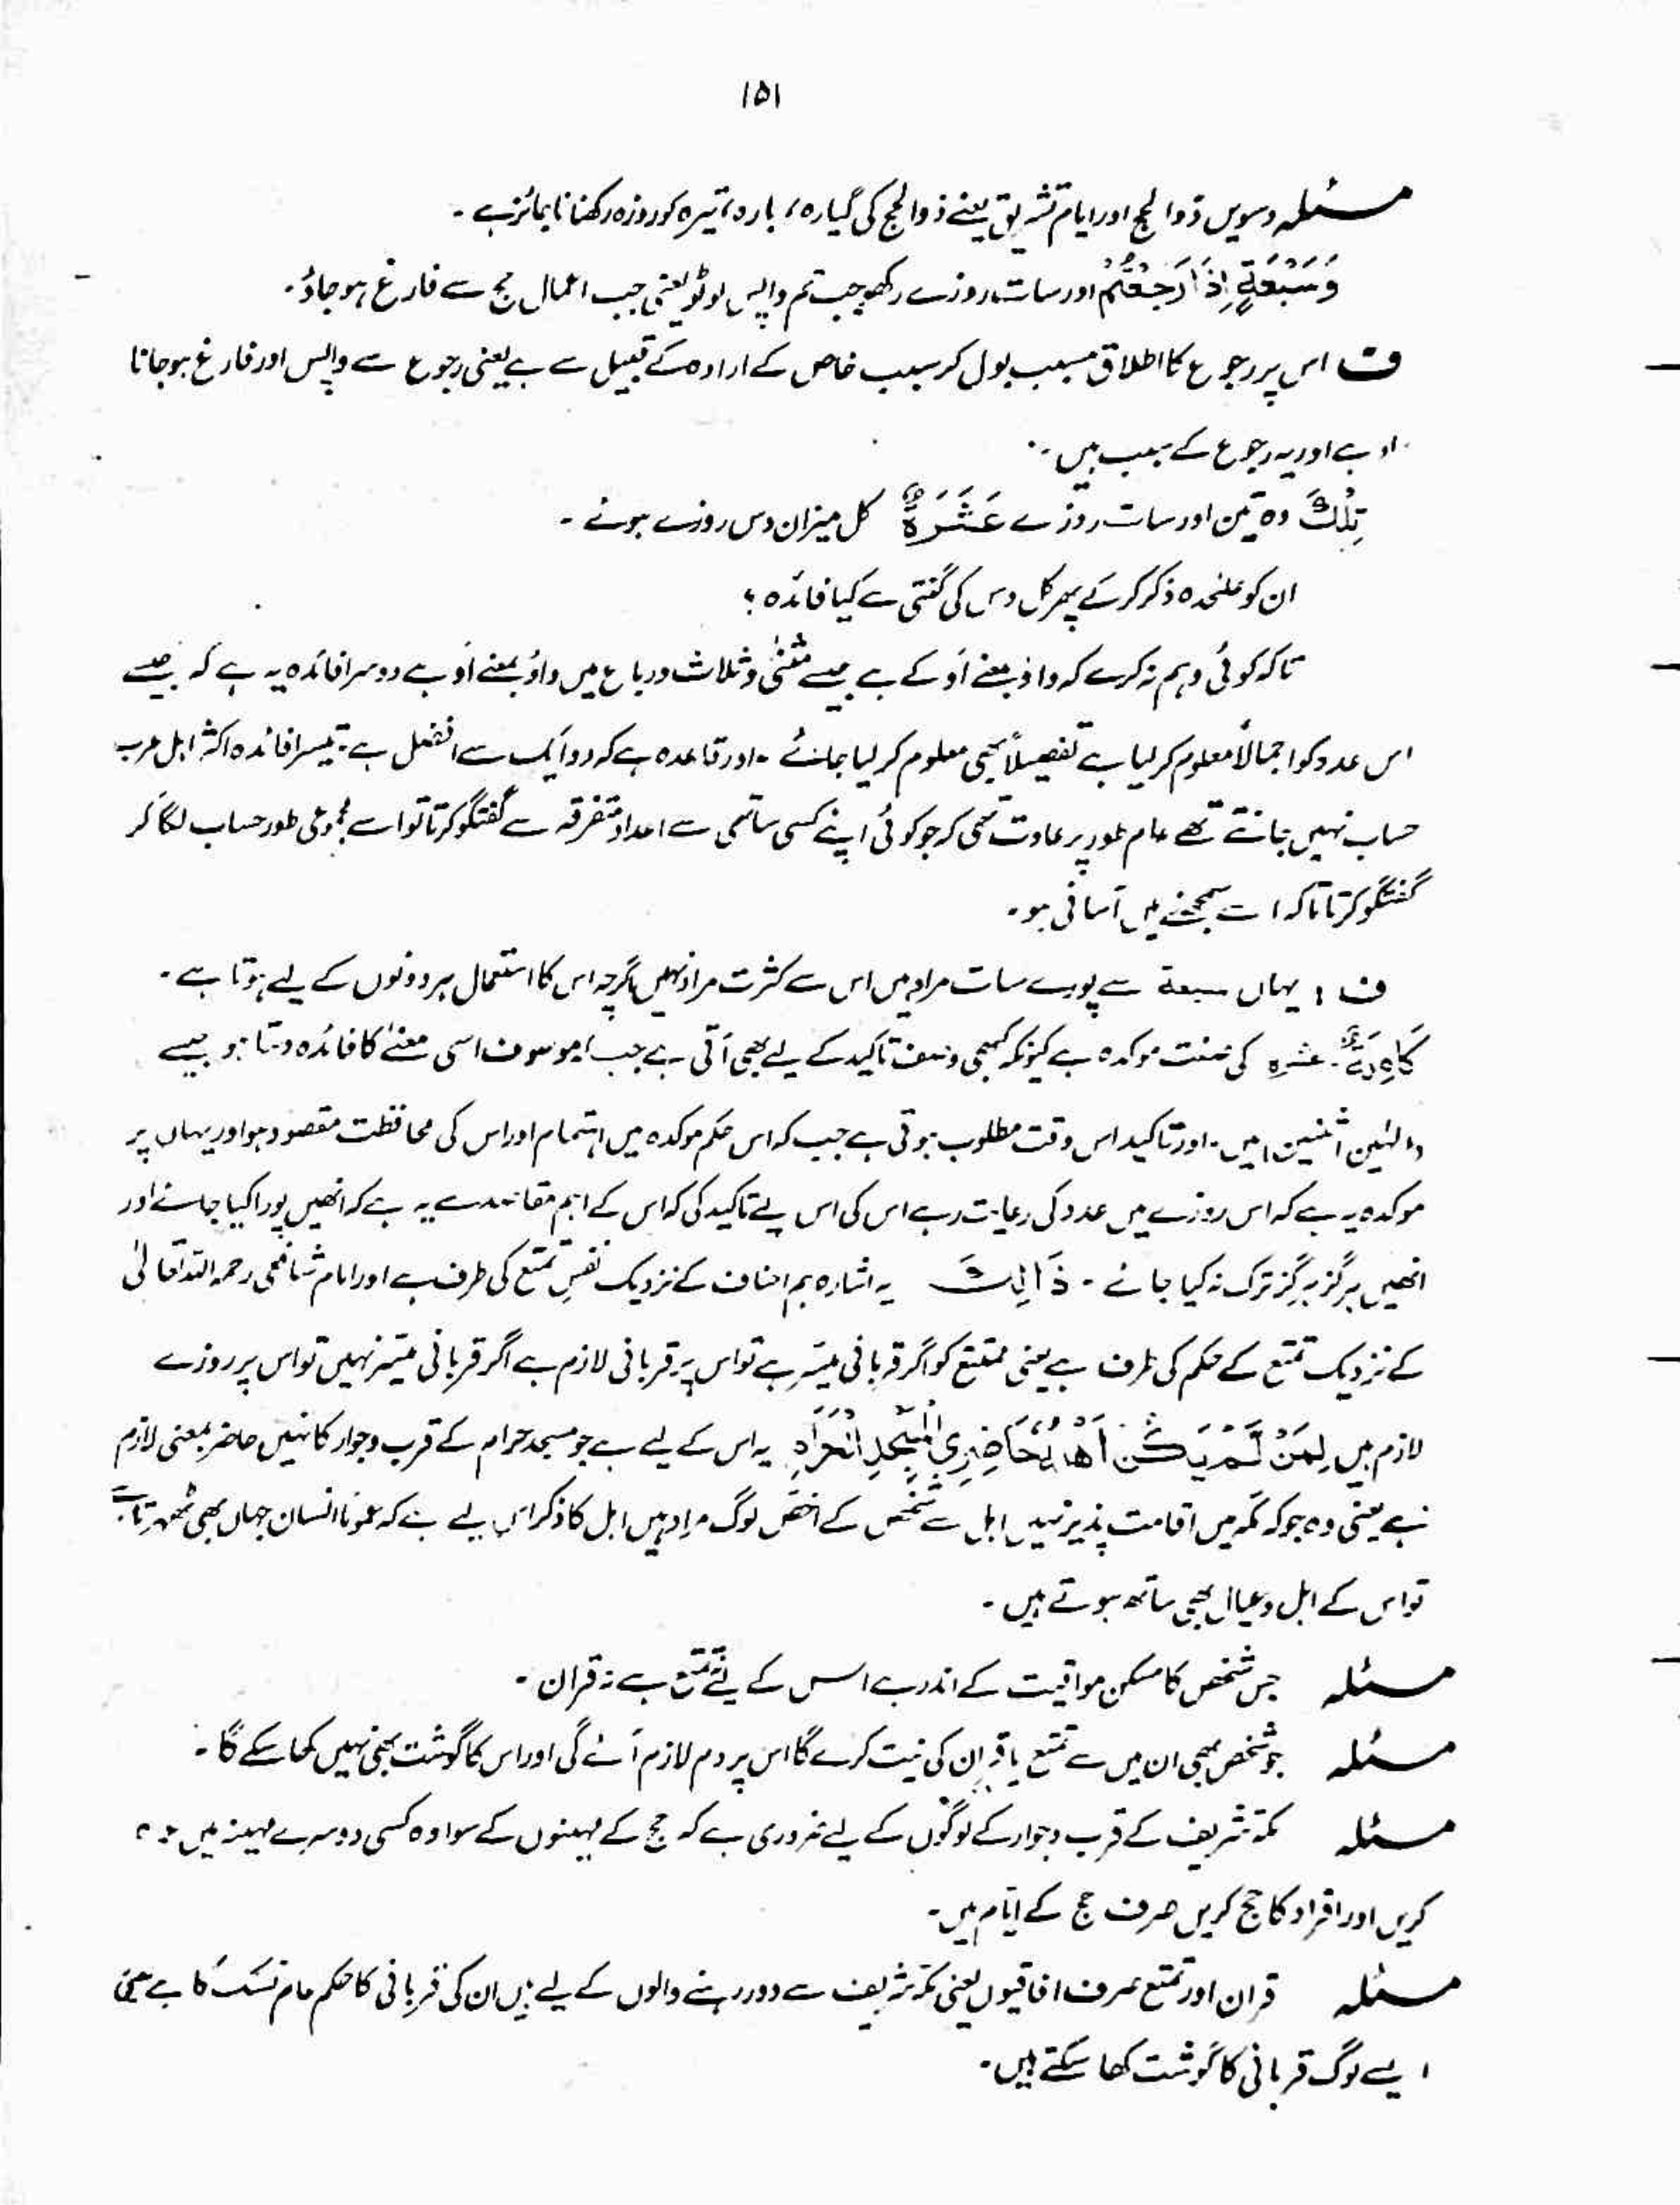 ۱۵۱
مسئلہ دسویں ذوالحج اور ایام تشریق یعنے ذوالحج کی گیارہ، بارہ، تیرہ کو روزہ رکھنا ناجائز ہے ۔
وَسَبْعَةٍ اِذَا رَجَعْتُمْ اور سات روزے رکھو جب تم واپس لوٹو یعنی جب اعمال حج سے فارغ ہو جاؤ ۔
ف اس پر رجوع کا اطلاق مسبب بول کر سبب خاص کے ارادہ کے قبیل سے ہے یعنی رجوع سے واپس اور فارغ ہوجانا
ہے اور یہ رجوع کے سبب ہیں ۔
تِلْكَ وہ تین اور سات روزے عَشَرَةٌ کل میزان دس روزے ہوئے ۔
ان کو علیٰحدہ ذکر کرکے پھر کل دس کی گنتی سے کیا فائدہ ؟
تاکہ کوئی وہم نہ کرے کہ واؤ بمعنے اَو کے ہے جیسے مثنیٰ و ثلاث و رباع میں واؤ بمعنے اَو ہے دوسرا فائدہ یہ ہے کہ جیسے
اس عدد کو اجمالاً معلوم کرلیا ہے تفصیلاً بھی معلوم کرلیا جائے ۔ اور قاعدہ ہے کہ دو ایک سے افضل ہے ۔ تیسرا فائدہ اکثر اہل عرب
حساب نہیں جانتے تھے عام طور پر عادت تھی کہ جو کوئی اپنے کسی ساتھی سے اعداد متفرقہ سے گفتگو کرتا تو اسے مجموعی طور حساب لگا کر
گفتگو کرتا تاکہ اسے سمجھنے میں آسانی ہو ۔
ف : یہاں سبعة سے پورے سات مراد ہیں اس سے کثرت مراد نہیں اگرچہ اس کا استعمال ہر دونوں کے لیے ہوتا ہے ۔
كَامِلَةٌ ۔ عشرہ کی صفت موکدہ ہے کیونکہ کبھی وصف تاکید کے لیے بھی آتی ہے جب موصوف اسی معنےٰ کا فائدہ دیتا ہو جیسے
الٰہین اثنین میں ۔ اور تاکید اس وقت مطلوب ہوتی ہے جب کہ اس حکم موکدہ میں اہتمام اور اس کی محافظت مقصود ہو اور یہاں پر
موکدہ یہ ہے کہ اس روزے میں عدد کی رعایت رہے اس کی اس لیے تاکید کی کہ اس کے اہم مقاصد سے یہ ہے کہ انھیں پورا کیا جائے اور
انھیں ہرگز ہرگز ترک نہ کیا جائے ۔ ذَالِكَ یہ اشارہ ہم احناف کے نزدیک نفس تمتع کی طرف ہے اور امام شافعی رحمہ اللہ تعالیٰ
کے نزدیک تمتع کے حکم کی طرف ہے یعنی متمتع کو اگر قربانی میسر ہے تو اس پر قربانی لازم ہے اگر قربانی میسر نہیں تو اس پر روزے
لازم ہیں لِمَنْ لَّمْ يَكُنْ اَهْلُهٗ حَاضِرِي الْمَسْجِدِ الْحَرَامِ یہ اس کے لیے ہے جو مسجد حرام کے قرب و جوار کا نہیں حاضر بمعنی لازم
ہے یعنی وہ جو کہ مکہ میں اقامت پذیر نہیں اہل سے شخص کے اخص لوگ مراد ہیں اہل کا ذکر اس لیے ہے کہ عموماً انسان جہاں بھی ٹھہرتا ہے
تو اس کے اہل و عیال بھی ساتھ ہوتے ہیں ۔
مسئلہ جس شخص کا مسکن مواقیت کے اندر ہے اس کے لئے نہ تمتع ہے نہ قران ۔
مسئلہ جو شخص بھی ان میں سے تمتع یا قران کی نیت کرے گا اس پر دم لازم آئے گی اور اس کا گوشت بھی نہیں کھا سکے گا ۔
مسئلہ مکہ شریف کے قرب و جوار کے لوگوں کے لیے ضروری ہے کہ حج کے مہینوں کے سوا وہ کسی دوسرے مہینہ میں
کریں اور افراد کا حج کریں صرف حج کے ایام میں ۔
مسئلہ قران اور تمتع صرف افاقیوں یعنی مکہ شریف سے دور رہنے والوں کے لیے ہیں ان کی قربانی کا حکم عام نسک کا ہے یعنی
ایسے لوگ قربانی کا گوشت کھا سکتے ہیں ۔